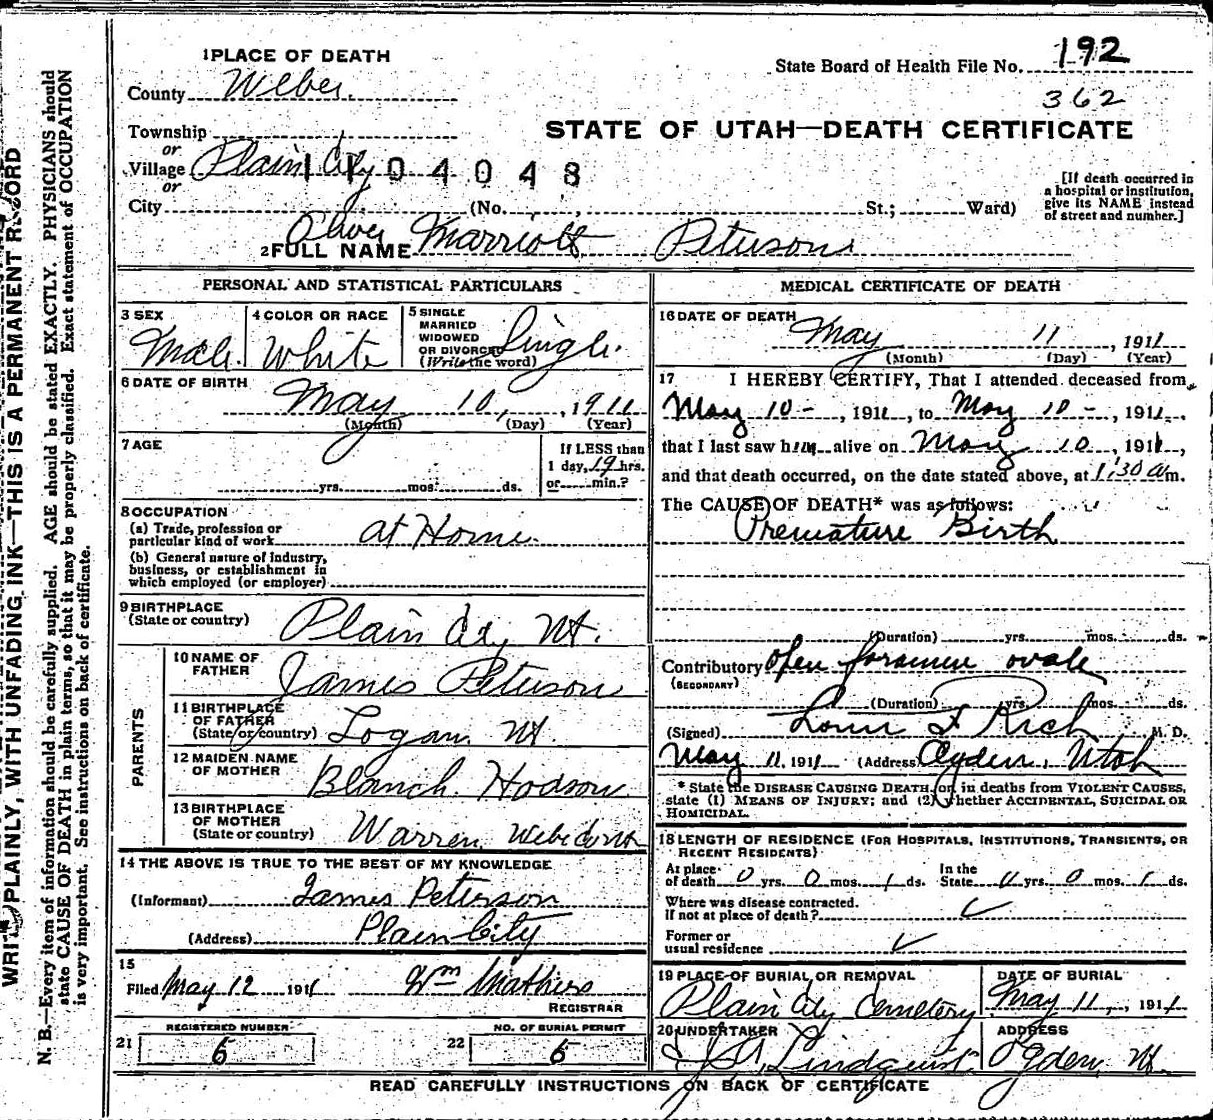 WRITE PLAINLY, WITH UNFADING INK—THIS IS A PERMANENT RECORD
N. B.—Every item of information should be carefully supplied. AGE should be stated EXACTLY. PHYSICIANS should
state CAUSE OF DEATH in plain terms, so that it may be properly classified. Exact statement of OCCUPATION
is very important. See instructions on back of certificate.
1 PLACE OF DEATH
County Weber
State Board of Health File No. 192
362
STATE OF UTAH—DEATH CERTIFICATE
Township
or
Village Plain City
1104048
or
City (No. , St.; Ward)
[If death occurred in
a hospital or institution,
give its NAME instead
of street and number.]
2 FULL NAME Oliver Marriott Peterson
PERSONAL AND STATISTICAL PARTICULARS
3 SEX
Male
4 COLOR OR RACE
White
5 SINGLE
MARRIED
WIDOWED
OR DIVORCED
(Write the word)
Single
6 DATE OF BIRTH
May 10, 1911
(Month) (Day) (Year)
7 AGE
yrs. mos. ds.
If LESS than
1 day, 19 hrs.
or min.?
8 OCCUPATION
(a) Trade, profession or
particular kind of work at Home
(b) General nature of industry,
business, or establishment in
which employed (or employer)
9 BIRTHPLACE
(State or country) Plain City Ut.
PARENTS
10 NAME OF
FATHER James Peterson
11 BIRTHPLACE
OF FATHER
(State or country) Logan Ut.
12 MAIDEN NAME
OF MOTHER Blanch Hodson
13 BIRTHPLACE
OF MOTHER
(State or country) Warren Weber Co Ut
14 THE ABOVE IS TRUE TO THE BEST OF MY KNOWLEDGE
(Informant) James Peterson
(Address) Plain City
15
Filed May 12 1911 Wm Mathers
REGISTRAR
REGISTERED NUMBER
21 6
NO. OF BURIAL PERMIT
22 6
MEDICAL CERTIFICATE OF DEATH
16 DATE OF DEATH
May 11, 1911
(Month) (Day) (Year)
17 I HEREBY CERTIFY, That I attended deceased from
May 10 - , 1911, to May 10 - , 1911,
that I last saw him alive on May 10, 1911,
and that death occurred, on the date stated above, at 1:30 a.m.
The CAUSE OF DEATH* was as follows:
Premature Birth
(Duration) yrs. mos. ds.
Contributory open foramen ovale
(SECONDARY)
(Duration) yrs. mos. ds.
(Signed) Rich M. D.
May 11, 1911 (Address) Ogden, Utah
* State the DISEASE CAUSING DEATH, or, in deaths from VIOLENT CAUSES,
state (1) MEANS OF INJURY; and (2) whether ACCIDENTAL, SUICIDAL OR
HOMICIDAL.
18 LENGTH OF RESIDENCE (FOR HOSPITALS, INSTITUTIONS, TRANSIENTS, OR
RECENT RESIDENTS)
At place
of death 0 yrs. 0 mos. 1 ds.
In the
State 0 yrs. 0 mos. 1 ds.
Where was disease contracted.
If not at place of death?
Former or
usual residence
19 PLACE OF BURIAL OR REMOVAL
Plain City Cemetery
DATE OF BURIAL
May 11, 1911
20 UNDERTAKER
Lindquist
ADDRESS
Ogden Ut.
READ CAREFULLY INSTRUCTIONS ON BACK OF CERTIFICATE